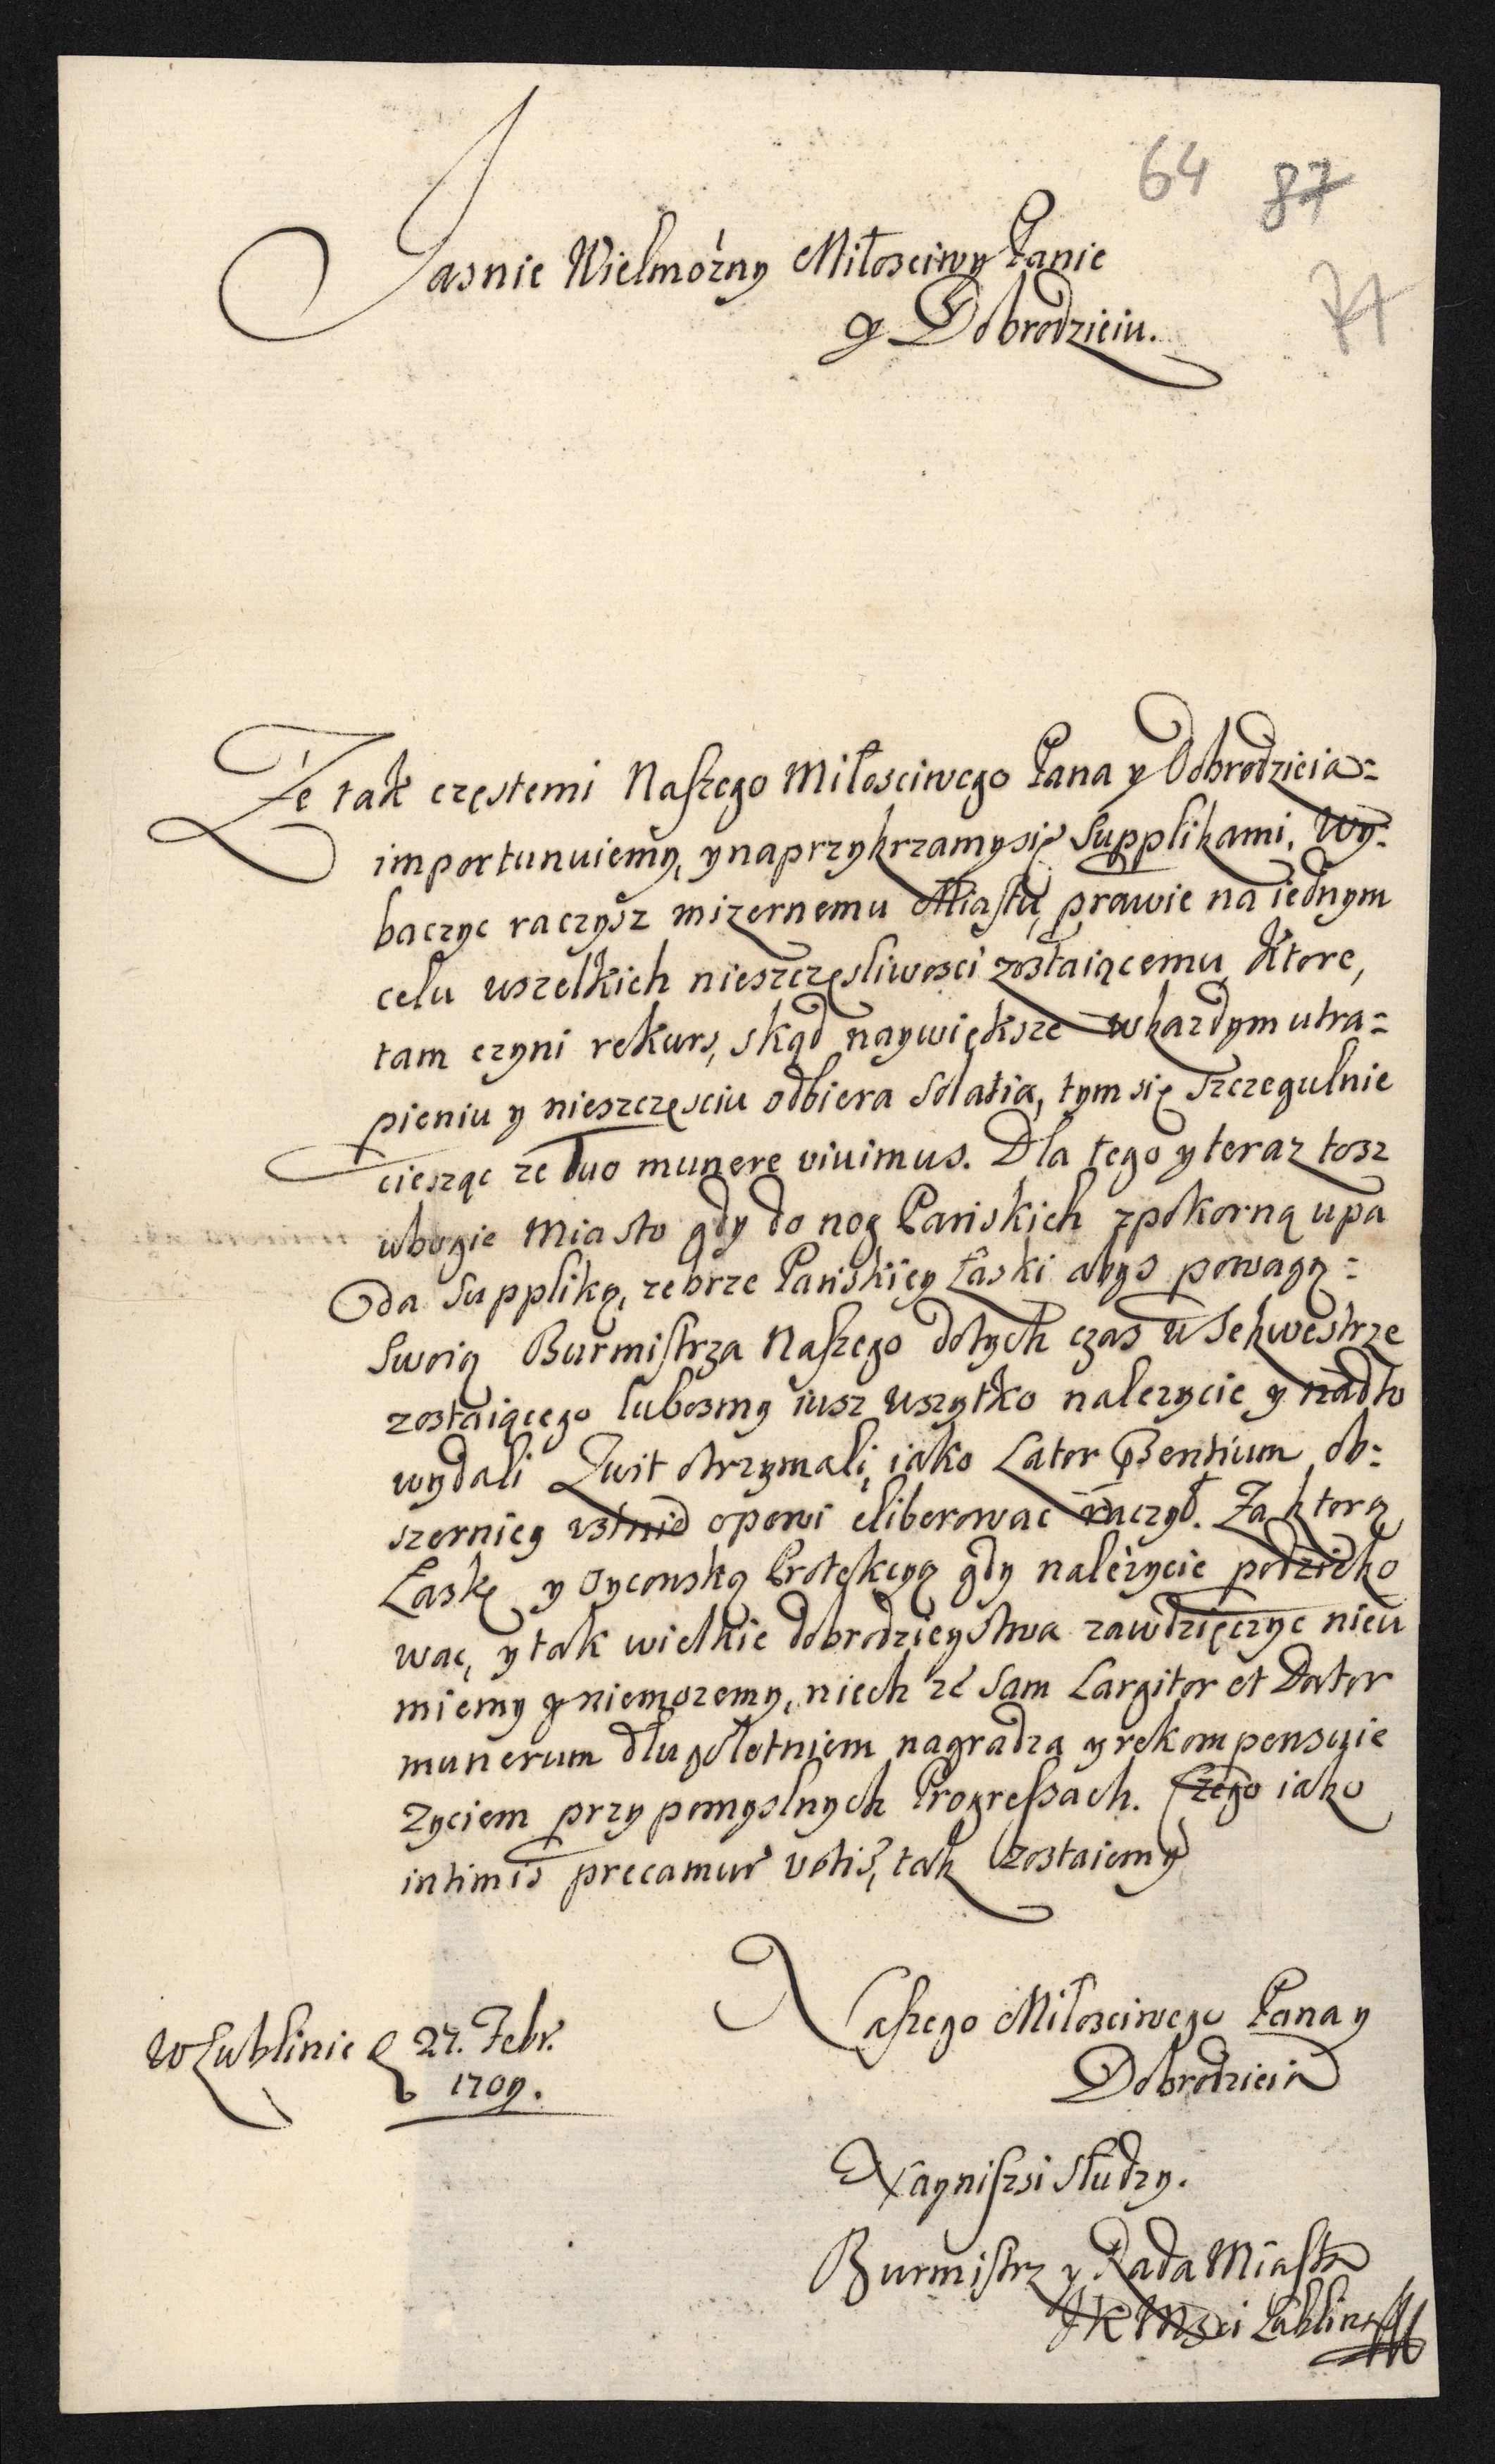 64 87
74
Jasnie Wielmożny Miłosciwy Panie
y Dobrodzieiu.
Że tak częstemi Naszego Miłosciwego Pana y Dobrodzieia=
importunuiemy, y naprzykrzamy się Supplikami, Wy=
baczyc raczysz mizernemu Miastu, prawie na iednym
celu wszelkich nieszczęsliwosci zostaiącemu, Ktore,
tam czyni rekurs, skąd naywiększe w kazdym utra=
pieniu y nieszczęsciu odbiera Solatia, tym się szczegulnie
ciesząc ze tuo munere vivimus. Dla tego y teraz tosz
ubogie Miasto gdy do nog Pańskich z pokorną upa
da Suppliką, zebrze Pańskiey Łaski abys powagą=
Swoią Burmistrza Naszego dotych czas w Sekwestrze
zostaiącego lubosmy iusz wszytko nalezycie y nadto
wydali Zwit otrzymali, iako Lator Psentium ob=
szerniey ustnie opowi eliberowac raczył. Za ktorą
Łaskę y Oycowską Protekcyą gdy należycie podzięko
wac, y tak wielkie dobrodzieystwa zawdzięczyc nieu
miemy y niemozemy, niech ze Sam Largitor et Dator
munerum długoletniem nagradza y rekompensuie
Zyciem przy pomyslnych Progressach. Czego iako
intimis precamur votis, tak zostaiemy
Naszego Miłosciwego Pana y
Dobrodzieia
W Lublinie 27. Febr.
1709.
Nayniszsi Słudzy.
Burmistrz y Rada Miasta
JK Msci Lublina